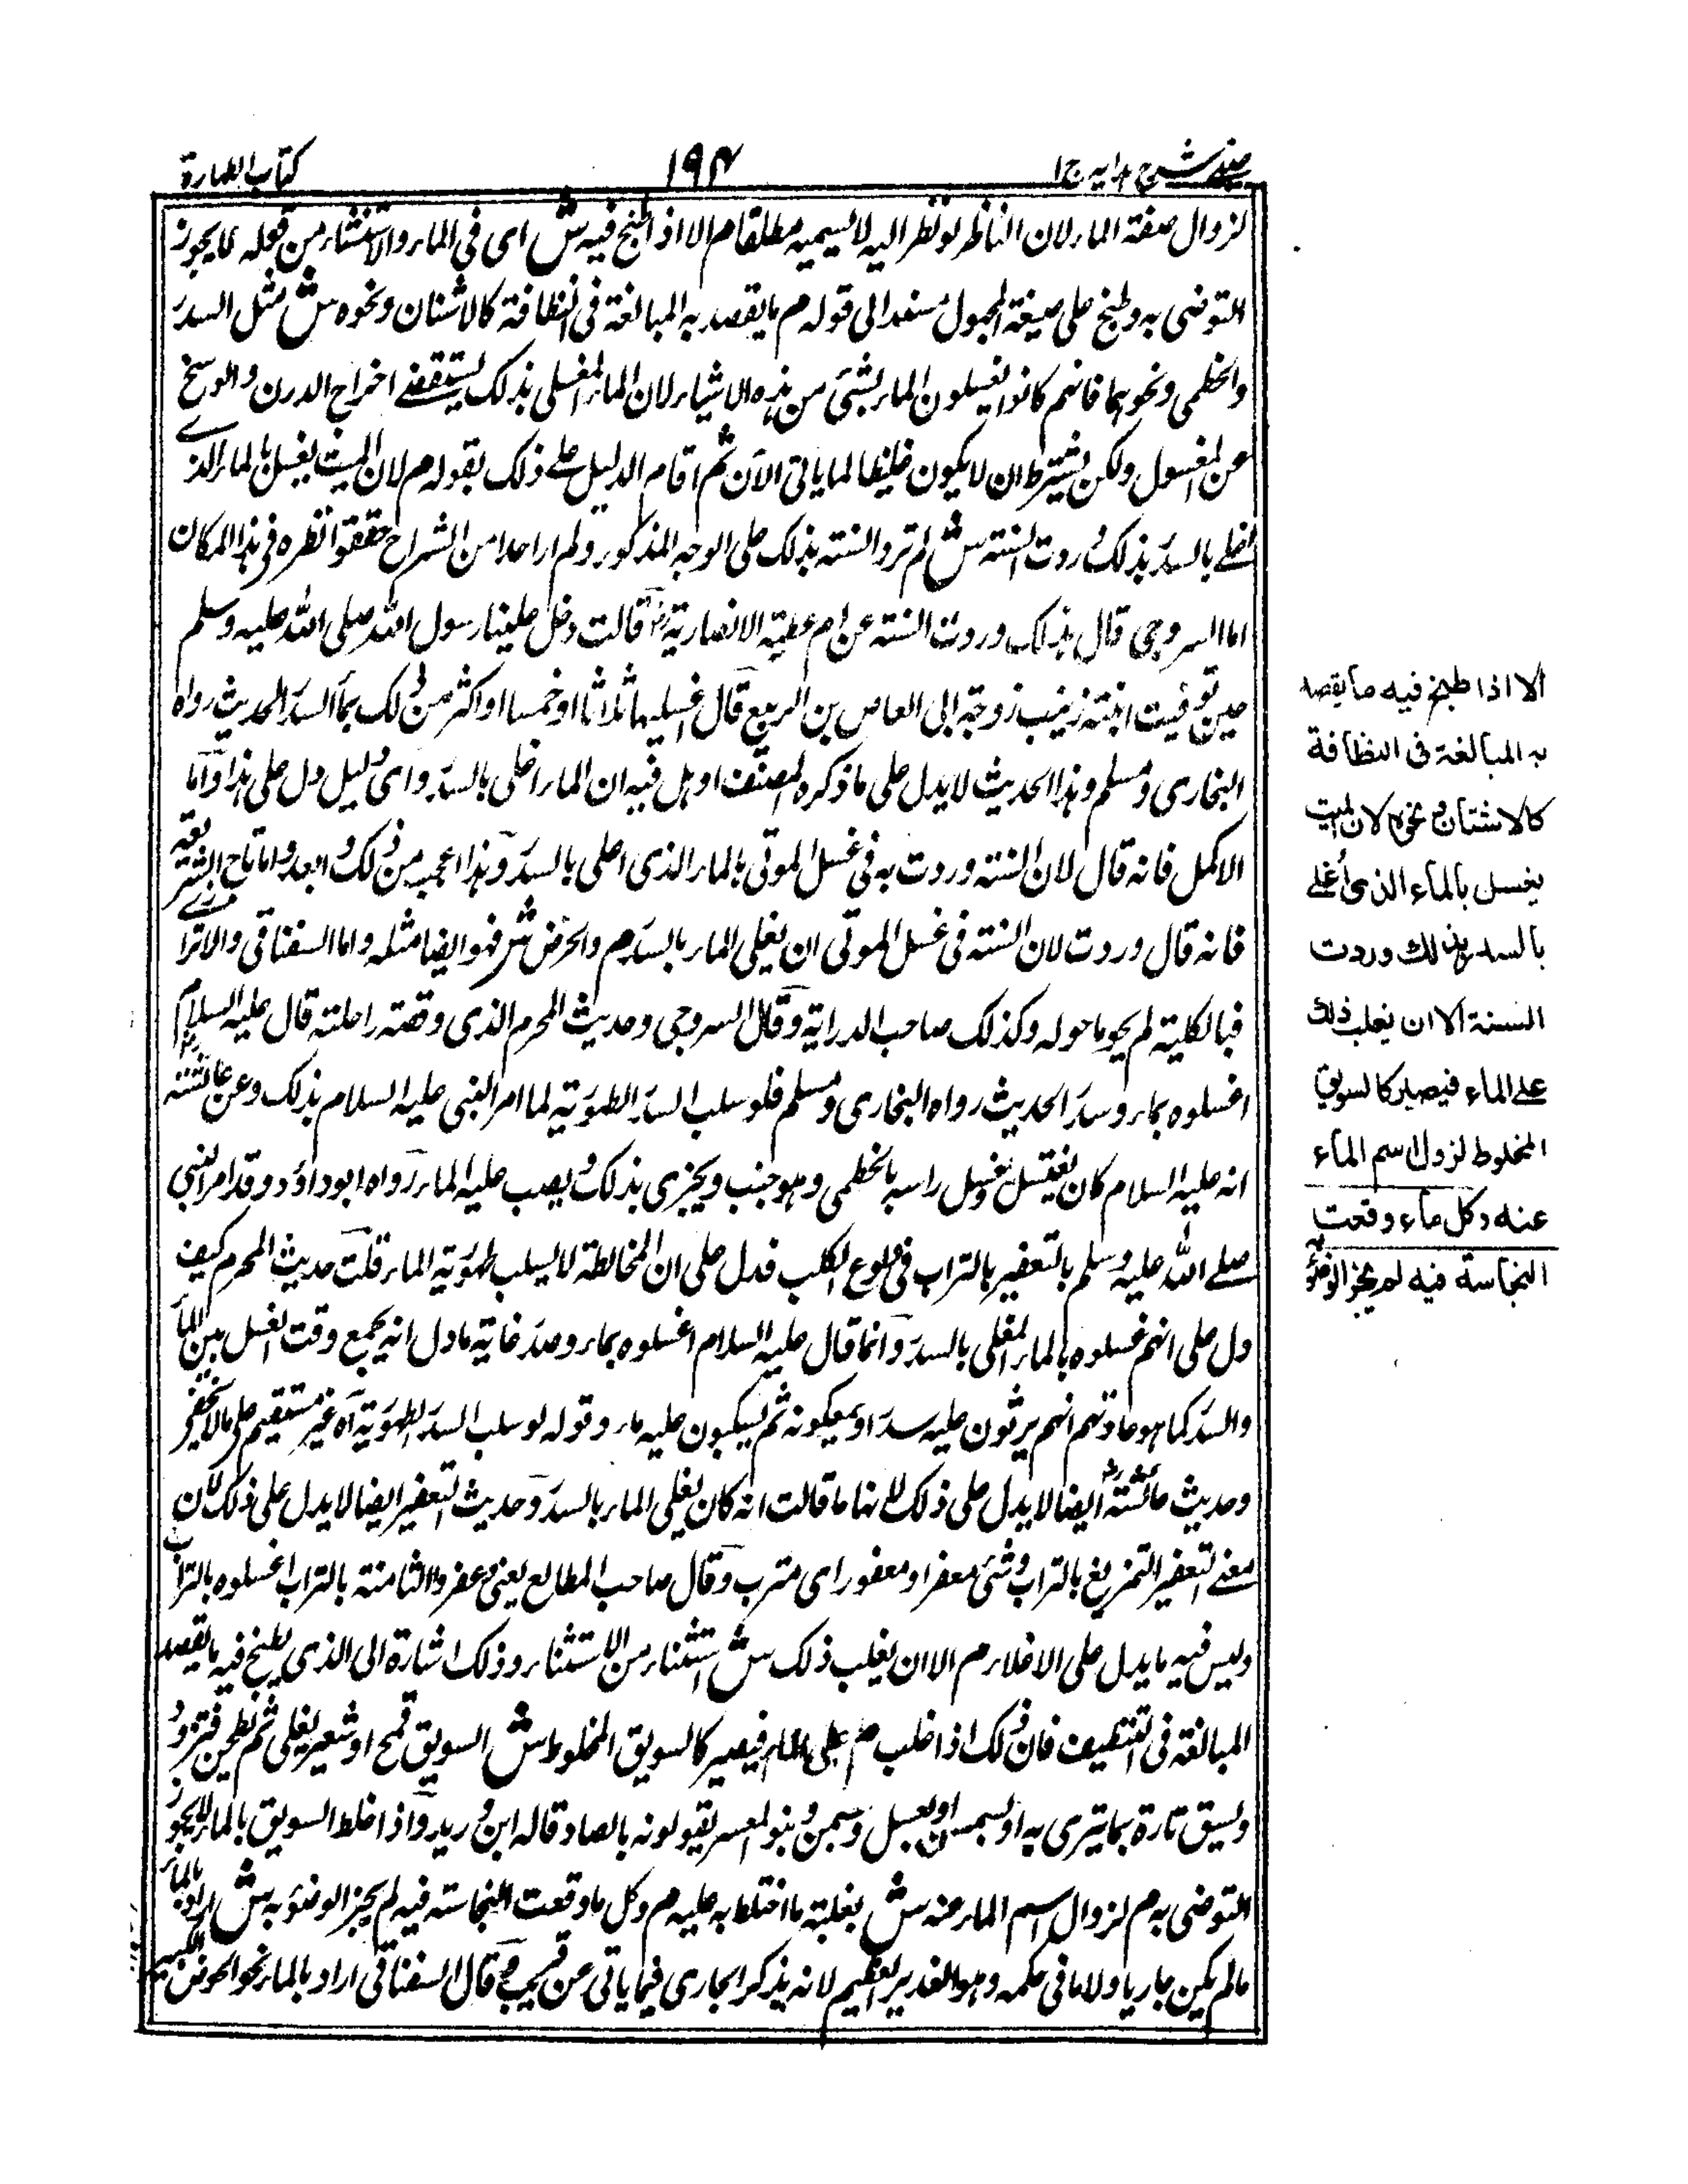 عینی شرح ہدایہ ج۱
۱۹۴
کتاب الطہارة
لزوال صفة الماء لان الناظر لو نظر الیہ لا یسمیہ ماء مطلقا م الا اذا طبخ فیہ ش ای فی الماء والاستثناء من قولہ لا یجوز
التوضی بہ وطبخ علی صیغة المجہول مسندا الی قولہ م ما یقصد بہ المبالغة فی النظافة کالاشنان ونحوہ ش مثل السدر
والخطمی ونحوہما فانہم کانوا یغسلون الماء بشیٔ من ہذہ الاشیاء لان الماء المغلی بذلک یستقضے اخراج الدرن والوسخ
عن المغسول ولکن یشترط ان لا یکون غلیظا لما یاتی الآن ثم اقام الدلیل علے ذلک بقولہ م لان المیت یغسل بالماء الذے
اغلے بالسدر بذلک وردت السنة ش لم ترد السنة بذلک علی الوجہ المذکور ولم ار احدا من الشراح حققوا نظرہ فی ہذا المکان
اما السروجی قال بذلک وردت السنة عن ام عطیة الانصاریة رض قالت دخل علینا رسول اللہ صلی اللہ علیہ وسلم
حین توفیت ابنتہ زینب زوجة ابی العاص بن الربیع قال اغسلیہا ثلاثا او خمسا او اکثر من ذلک بماء السدر الحدیث رواہ
البخاری ومسلم وہذا الحدیث لا یدل علی ما ذکرہ المصنف او ہل فیہ ان الماء اغلی بالسدر وای دلیل دل علی ہذا واما
الاکمل فانہ قال لان السنة وردت بہ فی غسل الموتی بالماء الذی اغلی بالسدر وہذا اعجب من ذلک وابعد واما تاج الشریعة
فانہ قال وردت لان السنة فی غسل الموتی ان یغلی الماء بالسدر م والحرض ش فہو ایضا مثلہ واما السغناقی والاترازے
فبالکلیة لم یحوما حولہ وکذلک صاحب الدرایة وقال السروجی وحدیث المحرم الذی وقصتہ راحلتہ قال علیہ السلام
اغسلوہ بماء وسدر الحدیث رواہ البخاری ومسلم فلو سلب السدر الطہوریة لما امر النبی علیہ السلام بذلک وعن عائشة رض
انہ علیہ السلام کان یغتسل ویغسل راسہ بالخطمی وہو جنب ویجزی بذلک ویصب علیہ الماء رواہ ابو داؤد وقد امر النبی
صلے اللہ علیہ وسلم بالتعفیر بالتراب فی ولوغ الکلب فدل علی ان المخالطة لا یسلب طہوریة الماء قلت حدیث المحرم کیف
دل علی انہم غسلوہ بالماء المغلی بالسدر وانما قال علیہ السلام اغسلوہ بماء وسدر غایة ما دل انہ یجمع وقت الغسل بین الماء
والسدر کما ہو عادتہم انہم یرثون علیہ سدرا ویمعکونہ ثم یسکبون علیہ ماء وقولہ لو سلب السدر الطہوریة آہ غیر مستقیم علی ما لا یخفی
وحدیث عائشة رض ایضا لا یدل علی ذلک لانہا ما قالت انہ کان یغلی الماء بالسدر وحدیث التعفیر ایضا لا یدل علی ذلک لان
معنے التعفیر التمریغ بالتراب وشیٔ معفر او معفور ای مترب وقال صاحب المطالع یعنی وعفروا الثامنة بالتراب اغسلوہ بالتراب
ولیس فیہ ما یدل علی الاغلاء م الا ان یغلب ذلک ش استثناء من الاستثناء وذلک اشارة الی الذی یطبخ فیہ ما یقصد
المبالغة فی التنظیف فان ذلک اذا غلب م علی الماء فیصیر کالسویق المخلوط ش السویق قمح او شعیر یغلی ثم یطحن فتزود
ویسق تارة بما یتری بہ او بسمن او بعسل وسمن وبنو العنبر یقولونہ بالصاد قالہ ابن درید واذا اخلط السویق بالماء لا یجوز
التوضی بہ م لزوال اسم الماء عنہ ش بغلبة ما اختلط بہ علیہ م وکل ما وقعت النجاسة فیہ لم یجز الوضوء بہ ش اراد بالماء
ما لم یکن جاریا ولا ما فی حکمہ وہو الغدیر العظیم لانہ یذکر الجاری فیما یاتی عن قریب قال السغناقی اراد بالماء نحو الحوض
الا اذا طبخ فیه ما یقصد
به المبالغة فی النظافة
کالاشنان ونحوه لان المیت
یغسل بالماء الذی أغلے
بالسدر بذلك وردت
السنة الا ان یغلب ذلك
علے الماء فیصیر کالسویق
المخلوط لزوال اسم الماء
عنه وکل ماء وقعت
النجاسة فیه لم یجز الوضوء به